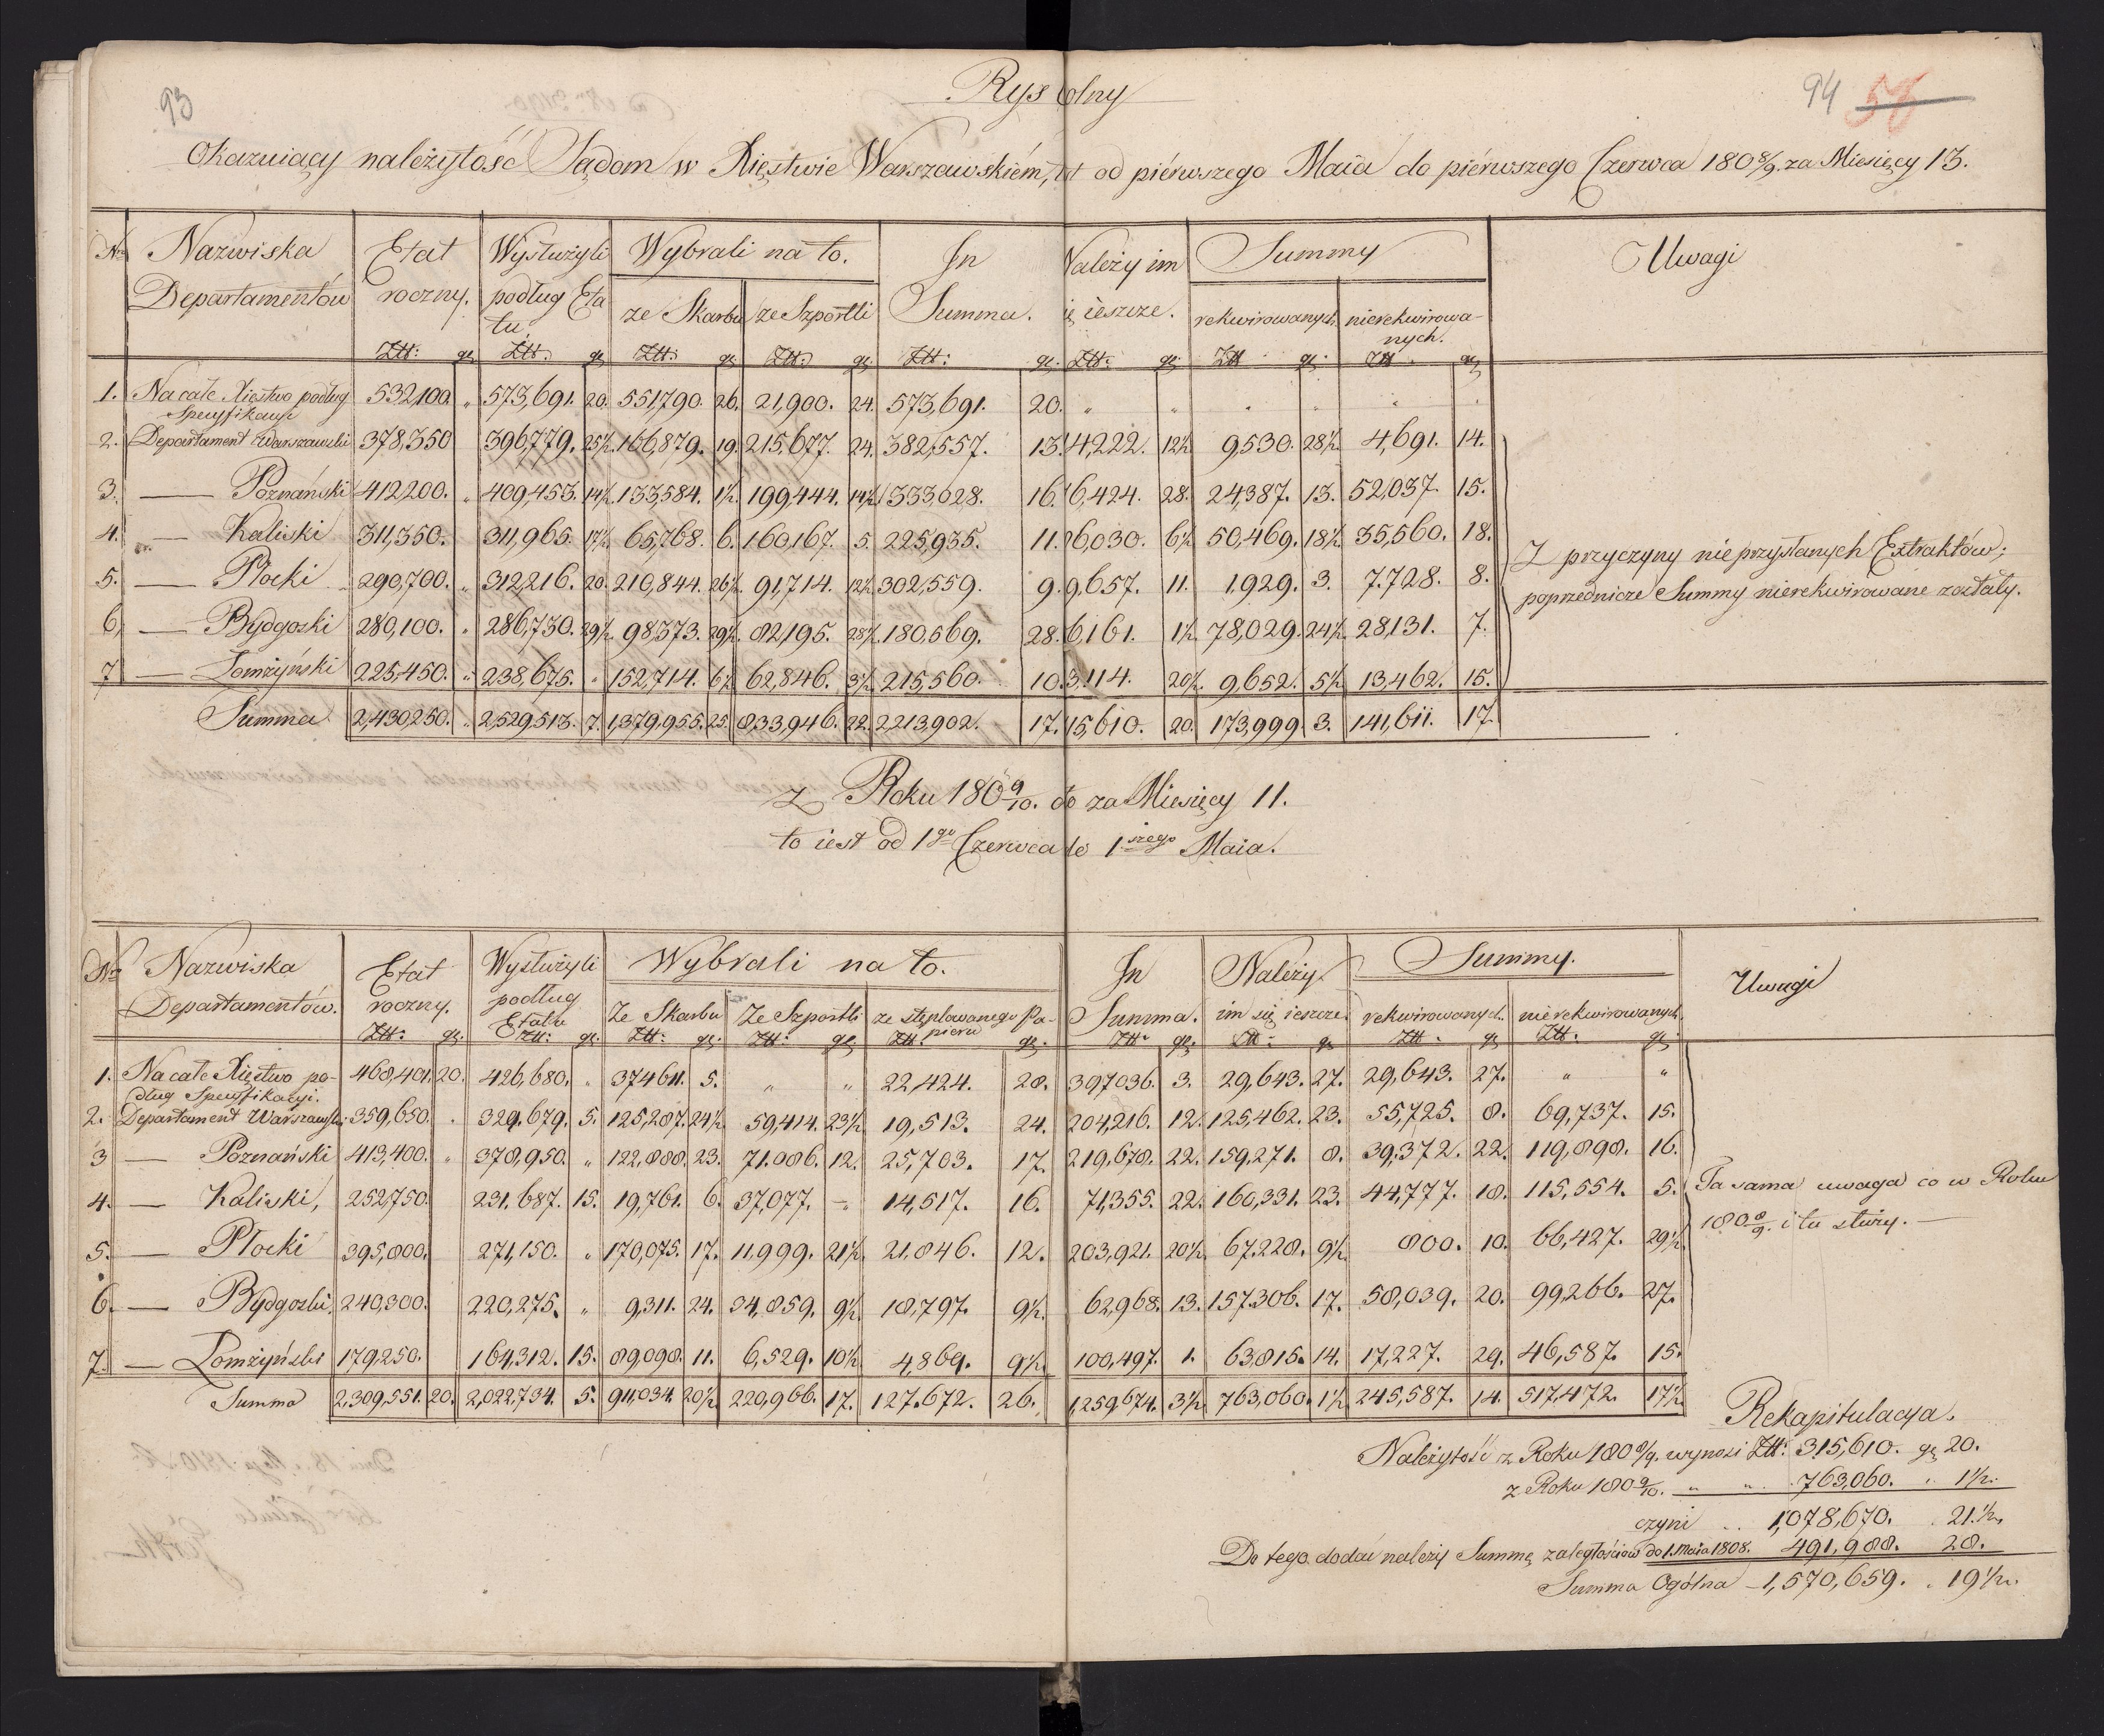 93
94 56
Rys olny
Okazuiący należytość Sądom w Xięstwie Warszawskiém, od piérwszego Maia do piérwszego Czerwca 180 8/9. za Miesięcy 13.
No Nazwiska Departamentów | Etat roczny. | Wysłużyli podług Etatu. | Wybrali na to. | In Summa. | Należy im ię ieszcze. | Summy | Uwagi
ze Skarbu | ze Szportli | rekwirowanych | nierekwirowanych.
Ztt: gr. Ztt. gr Ztt: gr. Ztt: gr. Ztt: gr. Ztt: gr. Ztt gr. Ztt. gr
1. Na całe Xięstwo podług Specyfikacyi 532,100. „ 573,691. 20. 551,790. 26. 21,900. 24. 573,691. 20. „ „ „ „ „ „
2. Departament Warszawski 378,350 396,779. 25½. 166,879. 19. 215,677. 24. 382,557. 13. 4,222. 12½ 9,530. 28½. 4,691. 14.
3. — Poznański 412,200. „ 409,453. 14½. 133,584. 1½. 199,444. 14½. 333,028. 16. 6,424. 28. 24,387. 13. 52,037. 15.
4. — Kaliski 311,350. 311,965. 17½. 65,768. 6. 160,167. 5. 225,935. 11. 6,030. 6½ 50,469. 18½. 35,560. 18.
5. — Płocki 290,700. „ 312,216. 20. 210,844. 26½. 91,714. 12½. 302,559. 9. 9,657. 11. 1,929. 3. 7,728. 8.
6. — Bydgoski 280,100. „ 286,730. 29½. 98,373. 29½. 82,195. 28½. 180,569. 28. 6,161. 1½. 78,029. 24½. 28,131. 7.
7 — Łomżyński 225,450. „ 238,675. „ 152,714. 6½. 62,846. 3½. 215,560. 10. 3,114. 20½. 9,652. 5½. 13,462. 15.
Summa 2,430,250. „ 2,529,513. 7. 1,379,955. 25. 833,946. 22. 2,213,902. 17. 15,610. 20. 173,999. 3. 141,611. 17.
Z przyczyny nieprzysłanych Extraktów;
poprzednicze Summy nierekwirowane zostały.
z Roku 180 9/10. to za Miesięcy 11.
to iest od 1go Czerwca do 1szego Maia.
No Nazwiska Departamentów. | Etat roczny. | Wysłużyli podług Etatu | Wybrali na to. | In Summa. | Należy im się ieszcze. | Summy. | Uwagi
Ze Skarbu | Ze Szportli | ze stęplowanego Papieru | rekwirowanych. | nierekwirowanych.
Ztt: gr. Ztt: gr. Ztt: gr. Ztt: gr. Ztt. gr. Ztt. gr. Ztt. gr Ztt. gr Ztt. gr
1. Na całe Xięstwo podług Specyfikacyi. 468,401. 20. 426,680. „ 374,611. 5. „ „ 22,424. 28. 397,036. 3. 29,643. 27. 29,643. 27. „ „
2. Departament Warszawski 359,650. . 329,679. 5. 125,287. 24½. 59,414. 23½. 19,513. 24. 204,216. 12. 125,462. 23. 55,725. 8. 69,737. 15.
3 — Poznański 413,400. „ 378,950. „ 122,888. 23. 71,086. 12. 25,703. 17. 219,678. 22. 159,271. 8. 39,372. 22. 119,898. 16.
4. — Kaliski, 252,750. 231,687. 15. 19,761. 6. 37,077. — 14,517. 16. 71,355. 22. 160,331. 23. 44,777. 18. 115,554. 5.
5. — Płocki 395,800. 271,150. „ 170,075. 17. 11,999. 21½. 21,846. 12. 203,921. 20½. 67,228. 9½. 800. 10. 66,427. 29½.
6. — Bydgoski. 240,300. 220,275. „ 9,311. 24. 34,859. 9½. 18,797. 9½. 62,968. 13. 157,306. 17. 58,039. 20. 99,266. 27.
7. — Łomżyński 179,250. 164,312. 15. 89,098. 11. 6,529. 10½. 4,869. 9½. 100,497. 1. 63,815. 14. 17,227. 29. 46,587. 15.
Summa 2,309,551. 20. 2,022,734. 5. 911,034. 20½. 220,966. 17. 127,672. 26. 1,259,674. 3½. 763,060. 1½. 245,587. 14. 517,472. 17½.
Ta sama uwaga co w Roku
180 8/9. i tu służy. —
Rekapitulacya.
Należytość z Roku 180 8/9. wynosi Ztt: 315,610. gr 20.
z Roku 180 9/10. „ „ 763,060. „ 1½.
czyni . . 1,078,670. . 21.½.
Do tego dodać należy Summę zaległościów do 1. Maia 1808. 491,988. 28.
Summa Ogólna — 1,570,659. „ 19½.